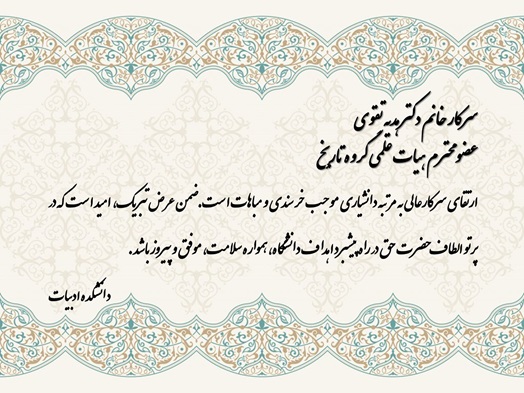 سرکار خانم دکتر هدیه تقوی
عضو محترم هیات علمی گروه تاریخ
ارتقای سرکار عالی به مرتبه دانشیاری موجب خرسندی و مباهات است. ضمن عرض تبریک، امید است که در
پرتو الطاف حضرت حق در راه پیشبرد اهداف دانشگاه، همواره سلامت، موفق و پیروز باشد.
دانشکده ادبیات